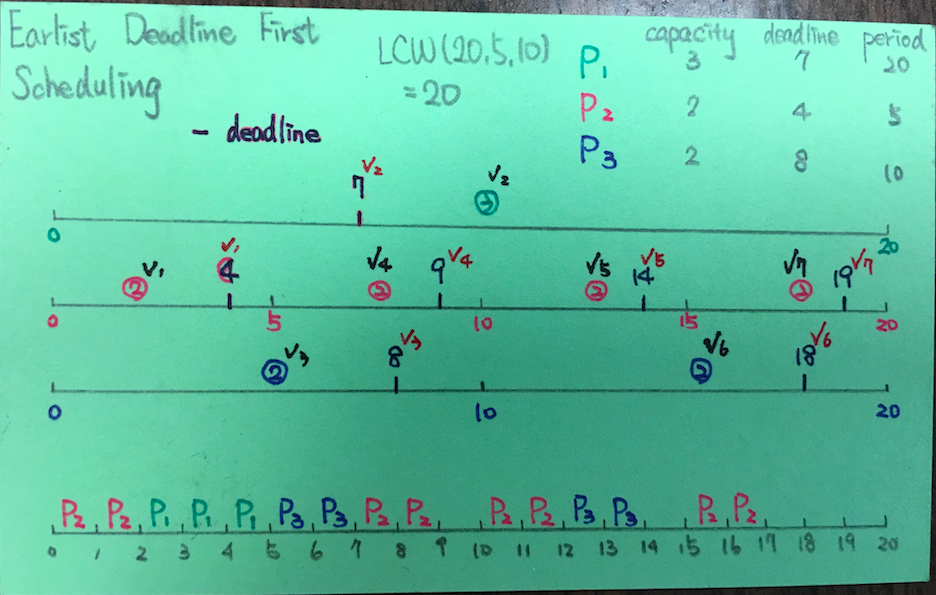 Earlist Deadline First
Scheduling
LCW(20,5,10)
=20
capacity deadline period
P1 3 7 20
P2 2 4 5
P3 2 8 10
- deadline
7 √2 ③ √2
0 20
② √1 4 √1 ② √4 9 √4 ② √5 14 √5 ② √7 19 √7
0 5 10 15 20
② √3 8 √3 ② √6 18 √6
0 10 20
P2 P2 P1 P1 P1 P3 P3 P2 P2 P2 P2 P3 P3 P2 P2
0 1 2 3 4 5 6 7 8 9 10 11 12 13 14 15 16 17 18 19 20